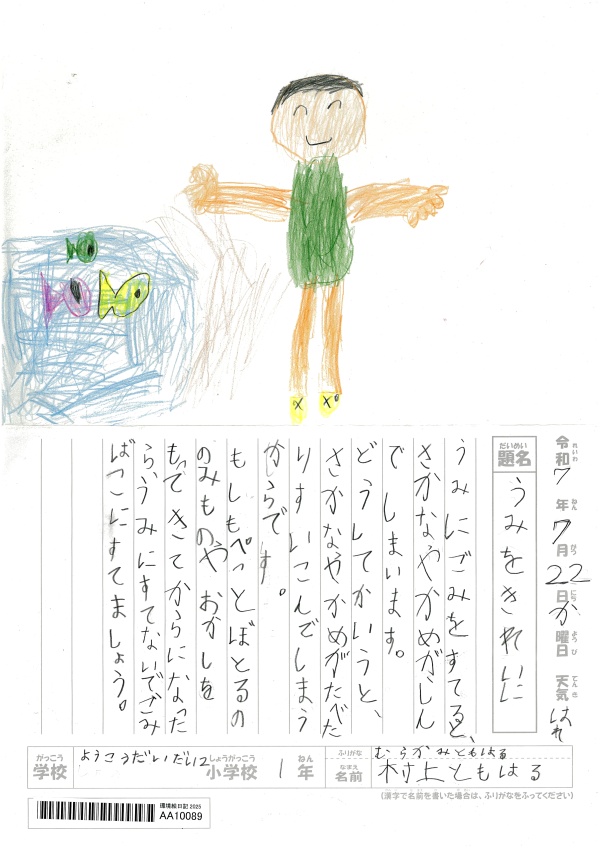 令和7年7月22日か曜日 天気はれ
れいわ ねん がつ にち ようび てんき
だいめい
題名 うみをきれいに
うみにごみをすてると、
さかなやかめがしん
でしまいます。
どうしてかいうと、
さかなやかめがたべた
りすいこんでしまう
からです。
もしもぺっとぼとるの
のみものやおかしを
もってきてからになった
らうみにすてないでごみ
ばこにすてましょう。
がっこう しょうがっこう ねん
学校 ようこうだいだい2小学校 1年
ふりがな むらかみともはる
なまえ
名前 村上ともはる
(漢字で名前を書いた場合は、ふりがなをふってください)
環境絵日記 2025
AA10089